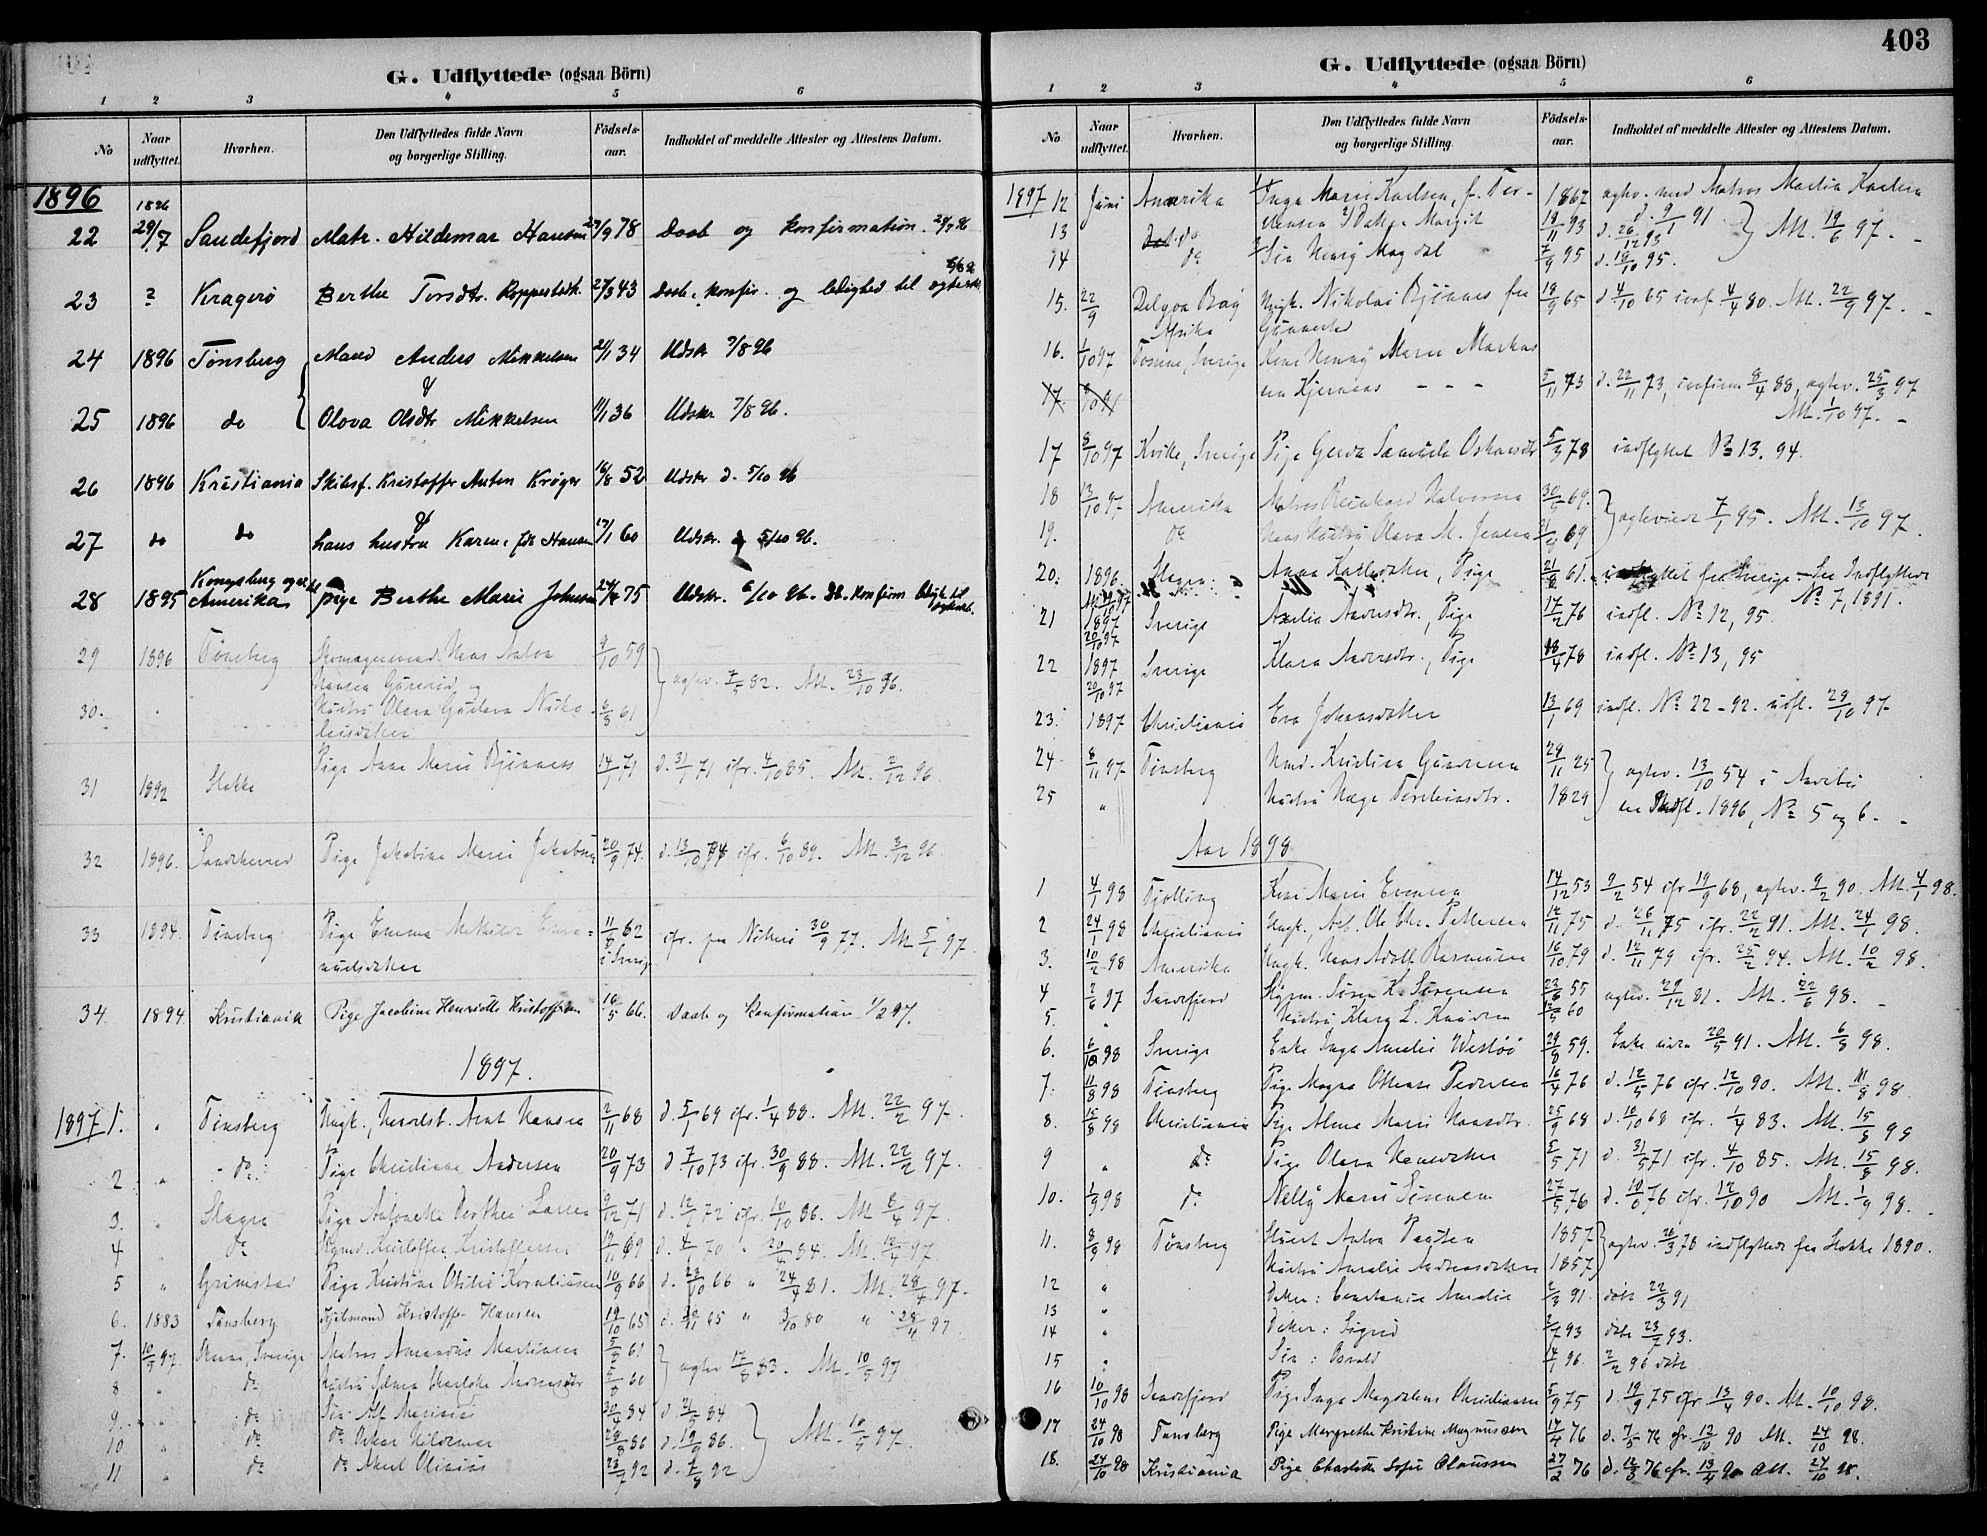 G. Udflyttede (ogsaa Börn)
1 2 3 4 5 6
No Naar udflyttet. Hvorhen. Den Udflyttedes fulde Navn og borgerlige Stilling. Födsels-aar. Indholdet af meddelte Attester og Attestens Datum.
1896
22 1896 29/7 Sandefjord Matr. Hildemar Hansen 27/9 78 Daab og konfirmation. 29/7 96
23 ? Kragerö Berthe Torsdtr. 27/3 43 Daab, konfir. og ledighed til ægtesk.
24 1896 Tönsberg Mand Anders Mikkelsen 21/1 34 Udskr 7/8 96
&
25 1896 do Olova Olsdtr Mikkelsen 11/1 36 Udskr 7/8 96.
26 1896 Kristiania Skibsf. Kristoffer Anton Kröger 16/8 52 Udskr d. 5/10 96
&
27 do do hans hustru Karen, född Hansen 17/1 60 Udskr. d 5/10 96.
28 1895 Kongsberg og til Amerika pige Berthe Marie Johnsen 24/4 75 Udskr. 6/10 96. Db. konfirm ledigh. til ægtesk.
29 1896 Tönsberg Skomagersvend Hans Anton 9/10 59
Hansen og ægtev. 7/5 82. Att. 23/10 96.
30. Hustru Olava Gustava Niko- 6/8 61
laisdatter
31 1892 Stokke Pige Anna Marie Bjönnes 14/1 71 d. 31/1 71 cfr. 4/10 85. Att. 2/12 96.
32 1896. Sandeherred Pige Jakobine Marie Jakobsen 20/9 74. d. 13/10 74 cfr. 6/10 89. Att. 3/12 96
33 1894. Tönsberg Pige Emma Mathilde Ema- 11/8 62 cfr. 30/9 77. Att. 5/1 97.
nuelsdatter i Sverig
34. 1894. Kristiania Pige Jacobine Henriette Kristoffersen 16/5 66. Daab og Konfirmation 1/2 97.
1897.
1897 1. " Tönsberg Ungk., Arnt Hansen 2/11 68 d. 5/1 69 cfr. 1/4 88. Att. 22/2 97.
2 " do. Pige Christiane Andersen 20/9 73 d 7/10 73 cfr. 30/9 88. Att. 22/2 97.
3. " Slagen Pige Antonette Berthea Larsen 9/12 71 d. 12/1 72 cfr. 10/10 86. Att 8/4 97.
4 " do Kristoffer Kristoffersen 19/11 69 d. 4/1 70 " 20/4 84. Att. 12/4 97
5 " Grimstad Pige Kristine Otilie Korneliusen 10/9 66 d. 23/10 66 " 24/4 81. Att. 28/4 97.
6. 1883 Tönsberg Kristoffer Hansen 19/10 65 d. 30/11 65 " 3/10 80 " 28/4 97
7. 10/5 97. Sverige Matros Amandus Martinsen 5/2 61
8 " do Hustru Selma Charlotte 6/8 60 ægtev 12/8 83. Att. 10/5 97
9. " do Sön: Alf Marinius 30/4 84 d 21/9 84
10 " do do Oskar Hildemar 28/8 86 d. 19/9 86. Att. 10/5 97.
11 " do do Aksel Olinius 23/7 92 d. 4/8 92
403
G. Udflyttede (ogsaa Börn)
1 2 3 4 5 6
No Naar udflyttet. Hvorhen. Den Udflyttedes fulde Navn og borgerlige Stilling. Födsels-aar. Indholdet af meddelte Attester og Attestens Datum.
1897 12 Juni Amerika Inga Marie Karlsen, f. Tor- 1867 ægtev. med Matros Martin Karlsen
13 do Datter Margit 19/11 93 d. 26/12 93 Att. 19/6 97.
14 do Sön Henry Magdal 7/9 95 d. 18/10 95.
15. 22/9 Delgoa Bay Afrika Ungk. Nikolai Bjönnes fra 19/9 65 d 4/10 65 conf. 4/4 80. Att. 22/9 97.
16. 1/10 97 Sverige Kone Henny Marie Markus-
17. sen Kjönnes 5/11 73 d. 22/11 73, confirm. 8/4 88, ægtev. 25/3 97
Att. 1/10 97.
17 8/10 97 Kville, Sverige Pige Gerda Samuela Oskarsdtr 5/3 78 indflyttet No 13. 94.
18 13/10 97 Amerika Matros Reinhard Halvorsen 30/5 69.
19. do Hans Hustru Olava M. Jensen 69 ægteviede 7/1 95. Att. 13/10 97.
20. 1896. Slagen Anna Pige 21/8 61. indflyttet fra Sverige. Se Indflyttede
No 7, 1891.
21 1897 20/10 97 Sverige Amalia Andersdtr., Pige 17/2 76 indfl. No 12, 95.
22 1897 20/10 97 Sverige Klara Andersdtr., Pige 18/4 78 indfl. No 13, 95
23. 1897 Christiania Eva Johansdatter 13/1 69 indfl. No 22 - 92. udfl. 29/10 97
24 8/11 97 Tönsberg Kristian Gundersen 29/11 25 ægtev. 13/10 54 i
25 " Hustru Torkildsdtr. 1829 er Indfl. 1896, No 5 og 6.
Aar 1898
1 4/1 98 Tjölling Kone Marie Evensen 14/12 53 9/2 54 cfr 19/9 68, ægtev. 9/2 90. Att. 4/1 98.
2 24/1 98 Christiania Ungk., Arb. Ole Chr. Pettersen 12/11 75 d. 26/11 75 cfr. 22/2 91. Att. 24/1 98.
3. 10/2 98 Amerika Ungk. Hans Adolf Rasmussen 16/10 79 d. 12/11 79 cfr. 25/2 94. Att. 10/2 98.
4 2/6 97 Sandefjord Sören K. Sörensen 23/6 55 ægtev. 29/12 81. Att. 22/6 98.
5. " Hustru Klara L. Knudsen 2/5 60
6. 6/8 98 Sverige Enke Inga Amalie Westöö 29/8 59. Enke siden 20/5 91. Att. 6/8 98.
7. 11/8 98 Tönsberg Pige Magna Othense Pedersen 16/4 76 d. 12/5 76 cfr. 12/10 90. Att. 11/8 98.
8. 15/8 98 Christiania Pige Alma Marie Hansdtr. 25/9 68 d. 10/10 68 cfr. 1/4 83. Att. 15/8 98
9 " do Pige Olava Hansdatter 2/5 71 d. 31/5 71 cfr. 4/10 85. Att. 15/8 98.
10. 1/9 98 do Nelly Marie Simonsen 27/5 76 d. 10/6 76 cfr. 12/10 90 Att. 1/9 98.
11. 8/9 98 Tönsberg Anton Paulsen 1857 ægtev. 26/3 78 indflyttede fra Stokke 1890.
12 " Hustru Amalie Andreasdatter 1857
13 " Datter: Constanse Amalie 2/3 91 döbt 22/3 91
14 " Datter: Sigrid 2/7 93 döbt 23/7 93.
15 " Sön: Osvald 4/1 96. 2/2 96 döbt
16 10/10 98 Sandefjord Pige Inga Magdalena Christiansen 5/9 75 d. 19/9 75 cfr. 13/4 90. Att. 10/10 98.
17 24/10 98 Tønsberg Pige Margrethe Kristine Magnussen 17/4 76 d. 7/5 76 cfr. 12/10 90 Att. 24/10 98.
18. 24/10 98 Kristiania Pige Charlotte Sofie Olaussen 27/2 76 d. 12/3 76 cfr. 13/4 90 Att. 24/10 98.